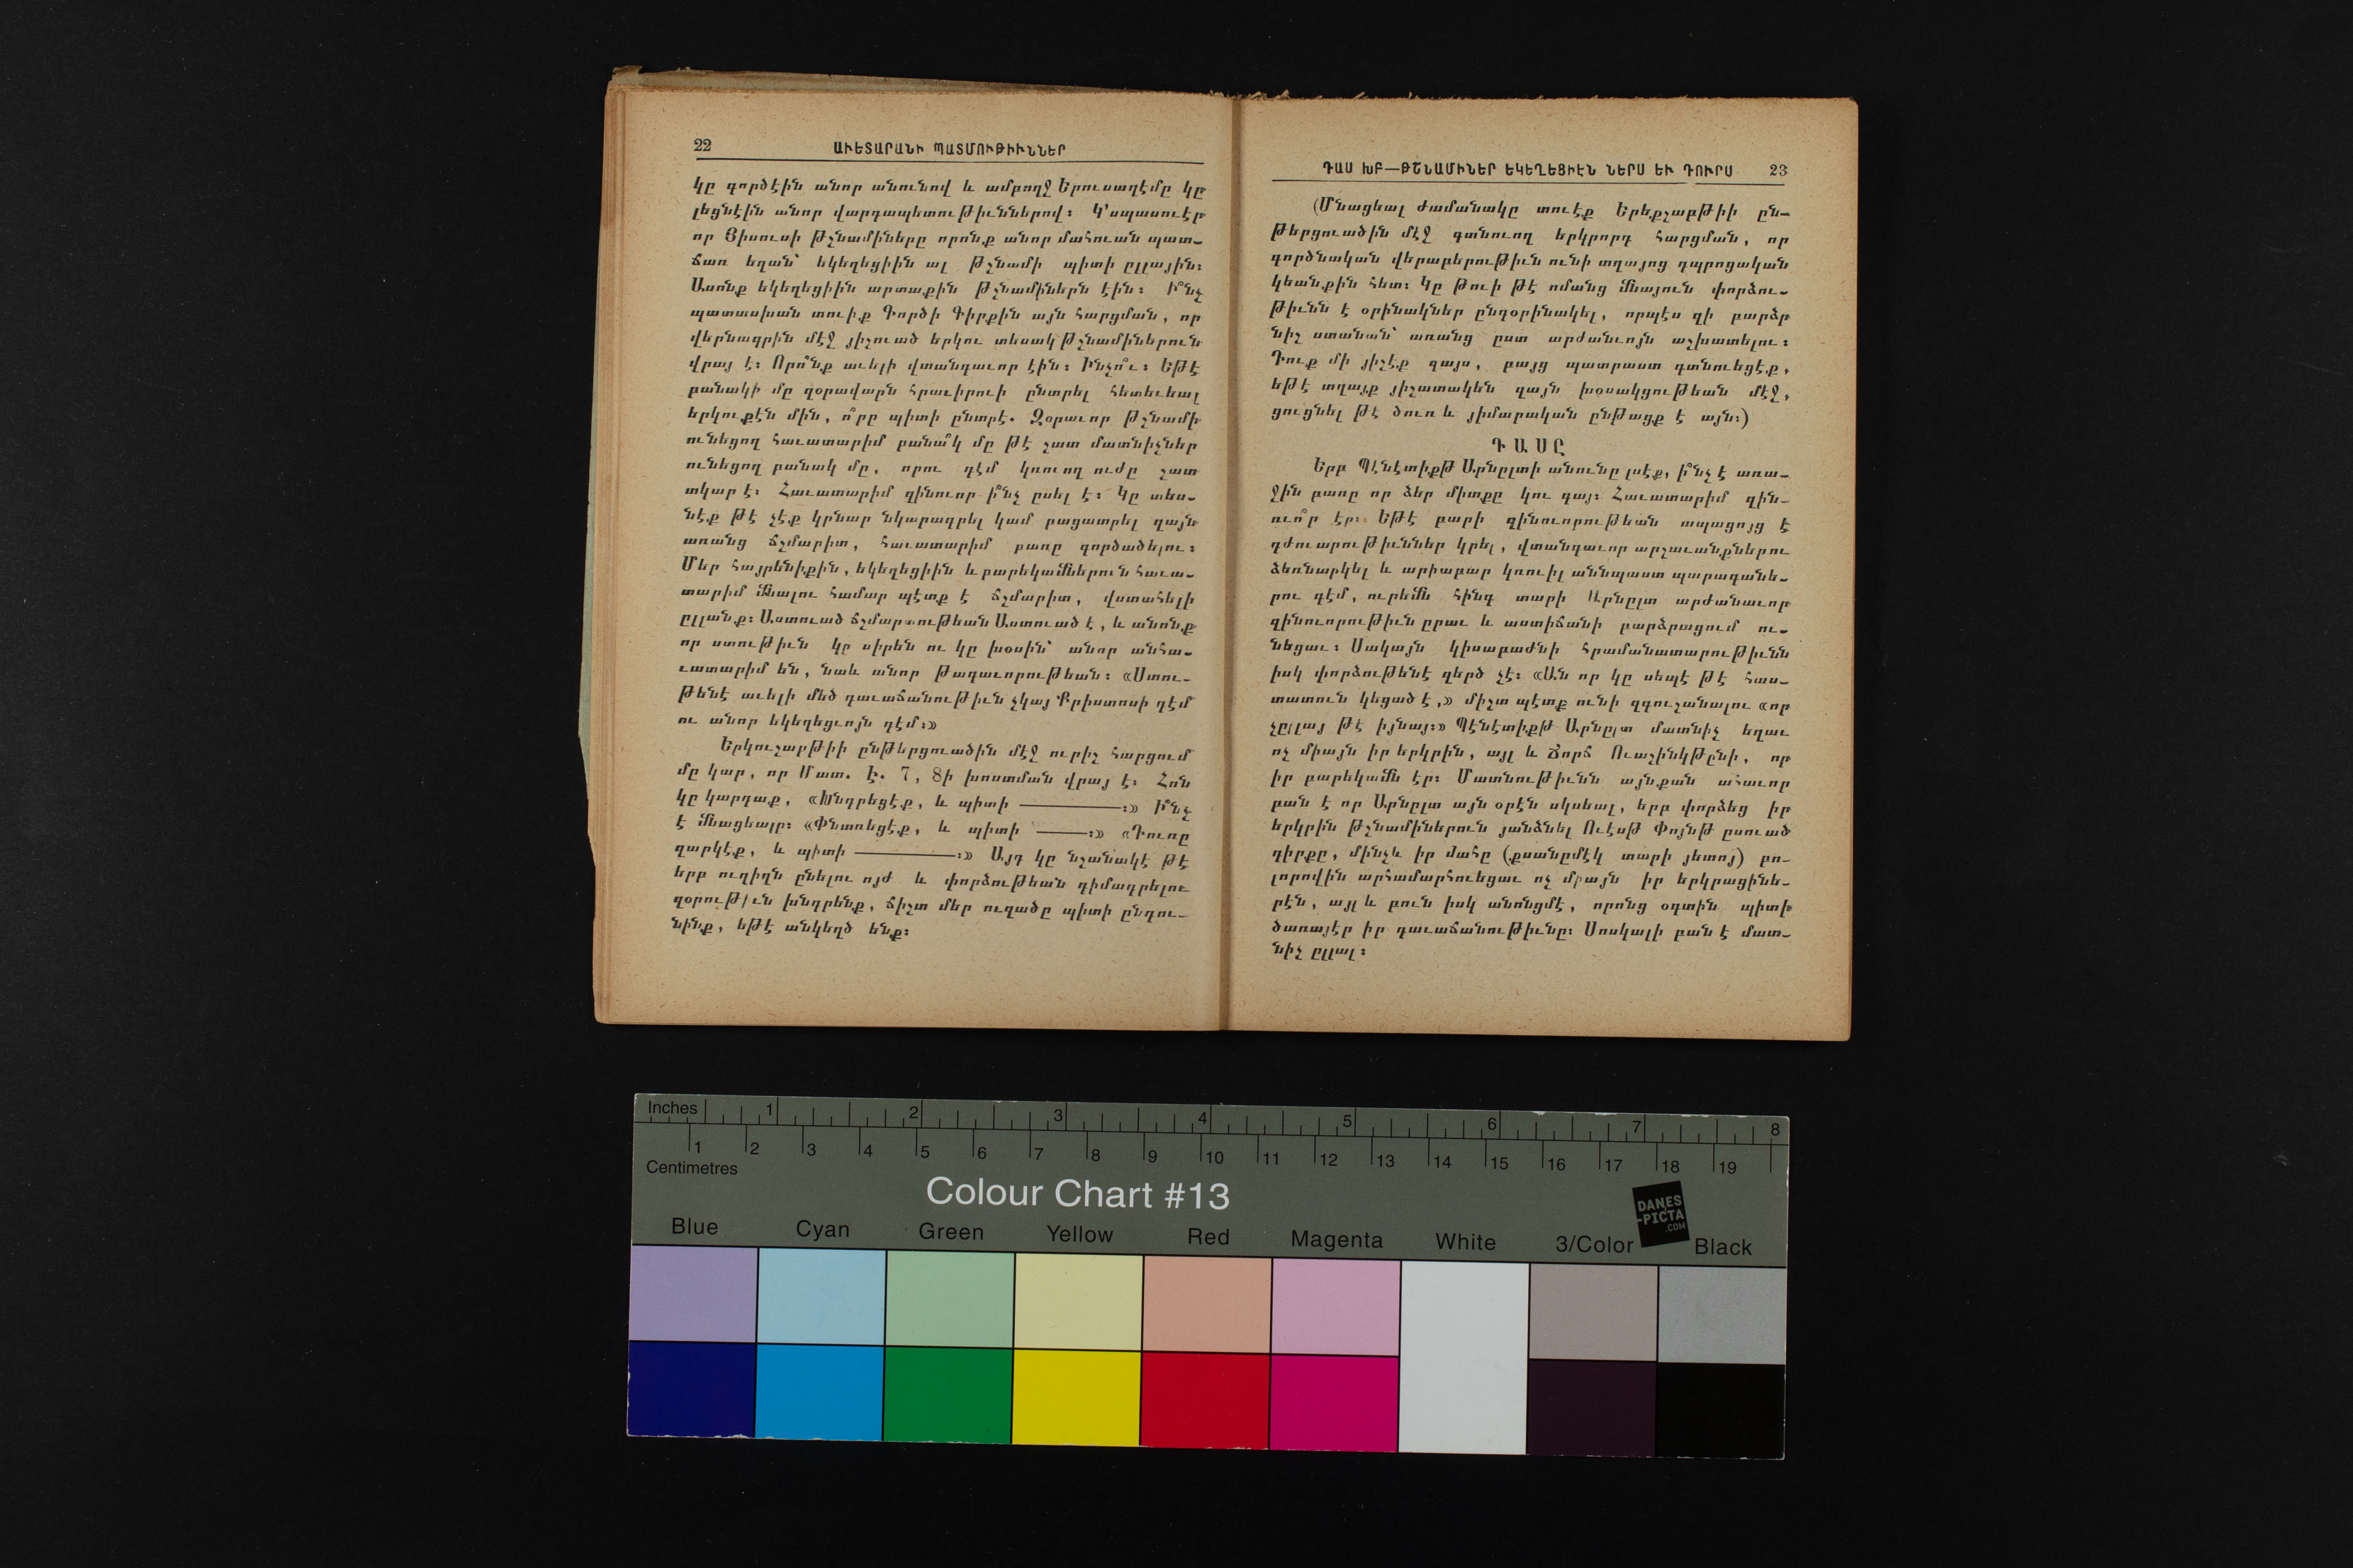 22 ԱՒԵՏԱՐԱՆԻ ՊԱՏՄՈՒԹԻՒՆՆԵՐ
կը գործէին անոր անունով և ամբողջ Երուսաղէմը կը
լեցնէին անոր վարդապետութիւններով։ Կ՚սպասուէր
որ Յիսուսի թշնամիները որոնք անոր մահուան պատ-
ճառ եղան՝ եկեղեցիին ալ թշնամի պիտի ըլլային։
Ասոնք եկեղեցիին արտաքին թշնամիներն էին։ Ի՞նչ
պատասխան տուիք Գործի Գիրքին այն հարցման, որ
վերնագրին մէջ յիշուած երկու տեսակ թշնամիներուն
վրայ է։ Որո՞նք աւելի վտանգաւոր էին։ Ինչո՞ւ։ Եթէ
բանակի մը զօրավարն հրաւիրուի ընտրել հետեւեալ
երկուքէն մին, ո՞րը պիտի ընտրէ. Զօրաւոր թշնամի
ունեցող հաւատարիմ բանա՞կ մը թէ շատ մատնիչներ
ունեցող բանակ մը, որու դէմ կռուող ուժը շատ
տկար է։ Հաւատարիմ զինուոր ի՞նչ ըսել է։ Կը տես-
նէք թէ չէք կրնար նկարագրել կամ բացատրել զայն
առանց ճշմարիտ, հաւատարիմ բառը գործածելու։
Մեր հայրենիքին, եկեղեցիին և բարեկամներուն հաւա-
տարիմ մնալու համար պէտք է ճշմարիտ, վստահելի
ըլլանք։ Աստուած ճշմարտութեան Աստուած է, և անոնք
որ ստութիւն կը սիրեն ու կը խօսին՝ անոր անհա-
ւատարիմ են, նաև անոր թագաւորութեան։ «Ստու-
թենէ աւելի մեծ դաւաճանութիւն չկայ Քրիստոսի դէմ
ու անոր եկեղեցւոյն դէմ։»
Երկուշաբթիի ընթերցուածին մէջ ուրիշ հարցում
մը կար, որ Մատ. Է. 7, 8ի խոստման վրայ է։ Հոն
կը կարդաք, «Խնդրեցէք, և պիտի ————։» Ի՞նչ
է մնացեալը։ «Փնտռեցէք, և պիտի ——։» «Դուռը
զարկէք, և պիտի ————։» Այդ կը նշանակէ թէ
երբ ուղիղն ընելու ոյժ և փորձութեան դիմադրելու
զօրութիւն խնդրենք, ճիշտ մեր ուզածը պիտի ընդու-
նինք, եթէ անկեղծ ենք։
ԴԱՍ ԽԲ—ԹՇՆԱՄԻՆԵՐ ԵԿԵՂԵՑԻԷՆ ՆԵՐՍ ԵՒ ԴՈՒՐՍ 23
(Մնացեալ ժամանակը տուէք Երեքշաբթիի ըն-
թերցուածին մէջ գտնուող երկրորդ հարցման, որ
գործնական վերաբերութիւն ունի տղայոց դպրոցական
կեանքին հետ։ Կը թուի թէ ոմանց մնայուն փորձու-
թիւնն է օրինակներ ընդօրինակել, որպէս զի բարձր
նիշ ստանան՝ առանց ըստ արժանւոյն աշխատելու։
Դուք մի յիշէք զայս, բայց պատրաստ գտնուեցէք,
եթէ տղայք յիշատակեն զայն խօսակցութեան մէջ,
ցուցնել թէ ծուռ և յիմարական ընթացք է այն։)
ԴԱՍԸ
Երբ Պէնէտիքթ Արնըլտի անունը լսէք, ի՞նչ է առա-
ջին բառը որ ձեր միտքը կու գայ։ Հաւատարիմ զին-
ուո՞ր էր։ Եթէ բարի զինուորութեան ապացոյց է
դժուարութիւններ կրել, վտանգաւոր արշաւանքներու
ձեռնարկել և արիաբար կռուիլ աննպաստ պարագանե-
րու դէմ, ուրեմն հինգ տարի Արնըլտ արժանաւոր
զինուորութիւն ըրաւ և աստիճանի բարձրացում ու-
նեցաւ։ Սակայն կիսաբաժնի հրամանատարութիւնն
իսկ փորձութենէ զերծ չէ։ «Ան որ կը սեպէ թէ հաս-
տատուն կեցած է,» միշտ պէտք ունի զգուշանալու «որ
չըլլայ թէ իյնայ։» Պէնէտիքթ Արնըլտ մատնիչ եղաւ
ոչ միայն իր երկրին, այլ և Ճորճ Ուաշինկթընի, որ
իր բարեկամն էր։ Մատնութիւնն այնքան ահաւոր
բան է որ Արնըլտ այն օրէն սկսեալ, երբ փորձեց իր
երկրին թշնամիներուն յանձնել Ուէսթ Փոյնթ ըսուած
դիրքը, մինչև իր մահը (քսանըմէկ տարի յետոյ) բո-
լորովին արհամարհուեցաւ ոչ միայն իր երկրացինե-
րէն, այլ և բուն իսկ անոնցմէ, որոնց օգտին պիտի
ծառայէր իր դաւաճանութիւնը։ Սոսկալի բան է մատ-
նիչ ըլլալ։
Inches 1 2 3 4 5 6 7 8
1 2 3 4 5 6 7 8 9 10 11 12 13 14 15 16 17 18 19
Centimetres
Colour Chart #13
DANES
-PICTA
.COM
Blue Cyan Green Yellow Red Magenta White 3/Color Black